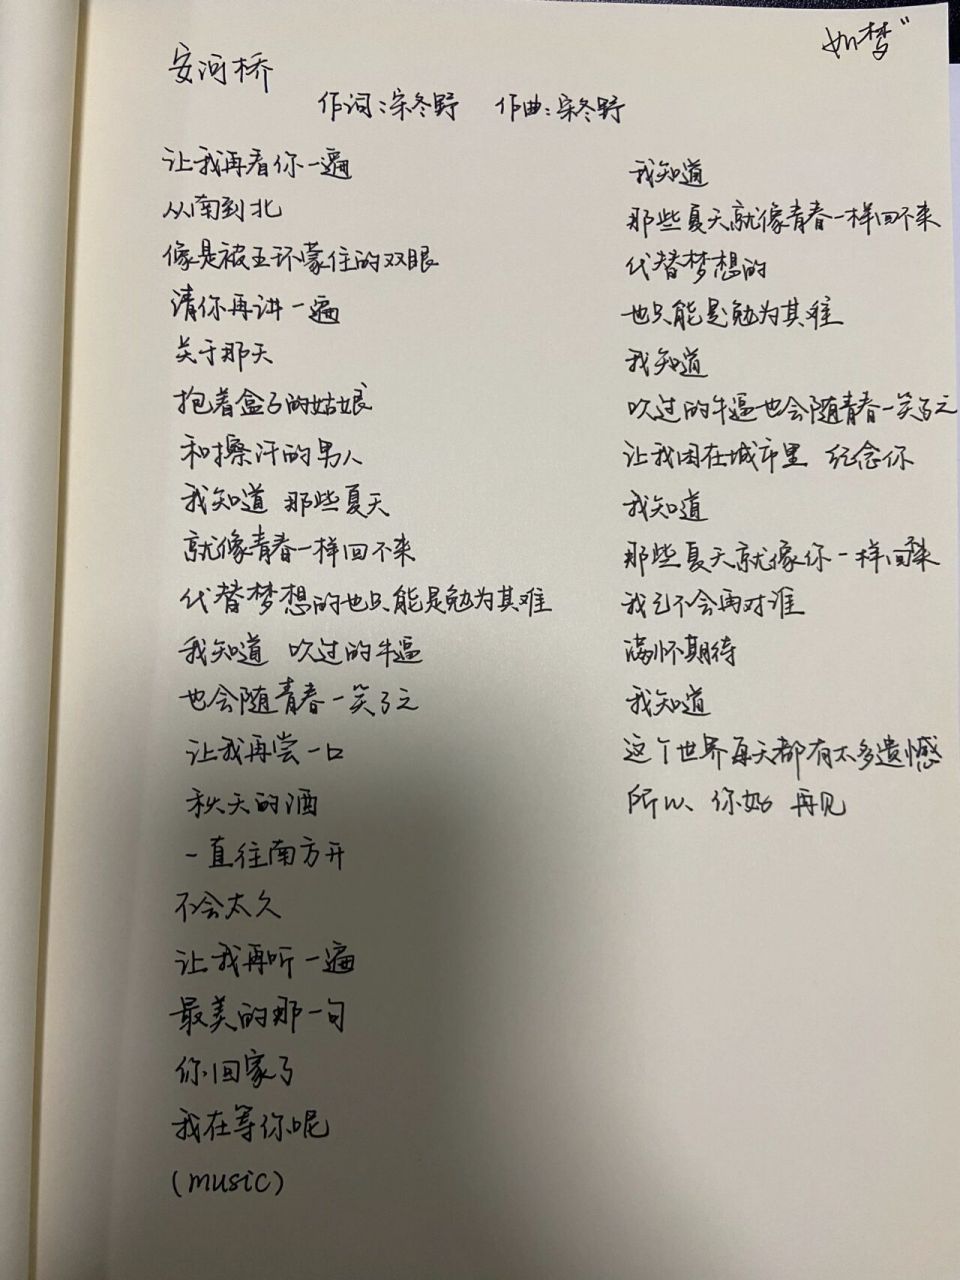 如梦"
安河桥
作词:宋冬野 作曲:宋冬野
让我再看你一遍
从南到北
像是被五环蒙住的双眼
请你再讲一遍
关于那天
抱着盒子的姑娘
和擦汗的男人
我知道 那些夏天
就像青春一样回不来
代替梦想的也只能是勉为其难
我知道 吹过的牛逼
也会随青春一笑了之
让我再尝一口
秋天的酒
一直往南方开
不会太久
让我再听一遍
最美的那一句
你回家了
我在等你呢
(music)
我知道
那些夏天就像青春一样回不来
代替梦想的
也只能是勉为其难
我知道
吹过的牛逼也会随青春一笑了之
让我困在城市里 纪念你
我知道
那些夏天就像你一样回不来
我已不会再对谁
满怀期待
我知道
这个世界每天都有太多遗憾
所以 你好 再见